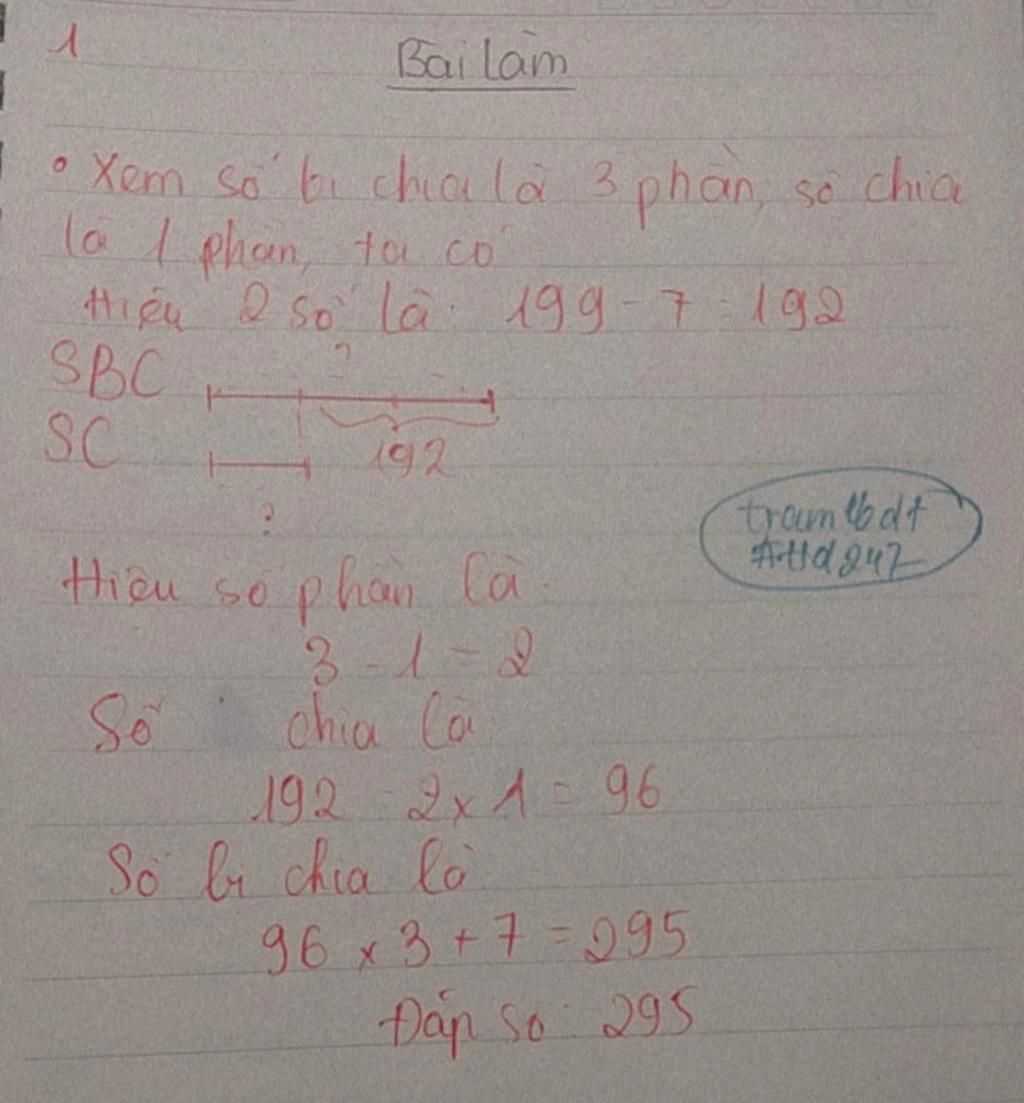 1
Bài làm
• Xem số bị chia là 3 phần, số chia
là 1 phần, ta có
Hiệu 2 số là: 199 - 7 = 192
?
SBC
SC 192
?
Hiệu số phần là:
3 - 1 = 2
Số chia là
192 : 2 x 1 = 96
Số bị chia là
96 x 3 + 7 = 295
Đáp số: 295